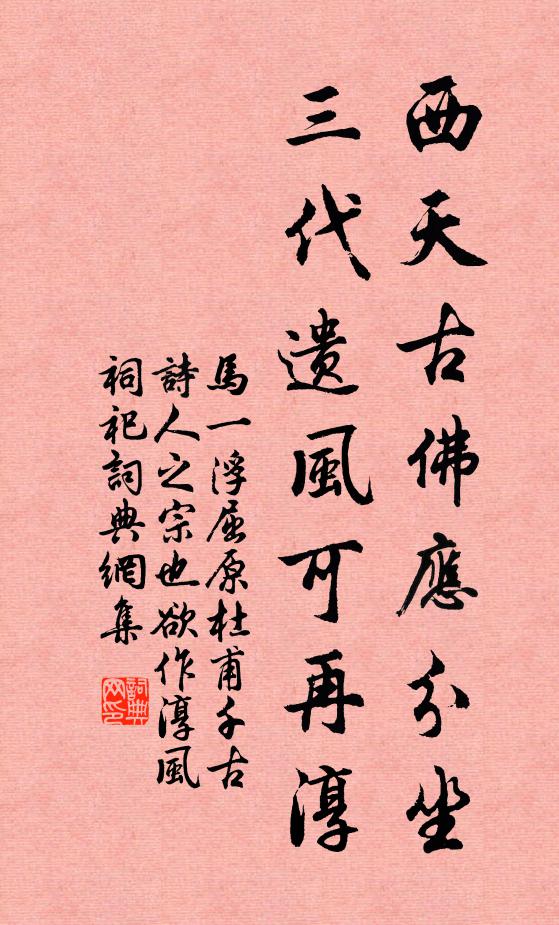 西天古佛應分坐
三代遺風可再淳
馬一浮屈原杜甫千古
詩人之宗也欲作淳風
祠祀詞典網集
詞典
网印